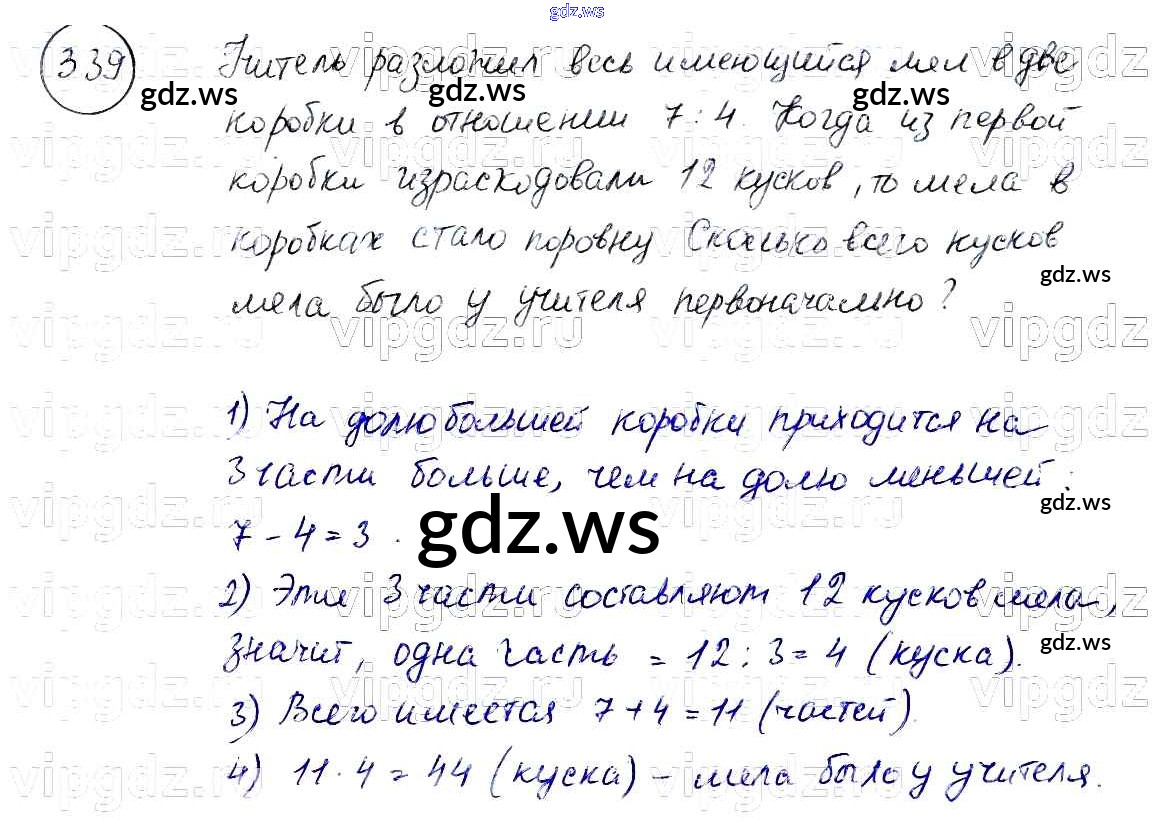 gdz.ws
339 Учитель разложил весь имеющийся мел в две
коробки в отношении 7:4. Когда из первой
коробки израсходовали 12 кусков, то мела в
коробках стало поровну. Сколько всего кусков
мела было у учителя первоначально?
1) На долю большей коробки приходится на
3 части больше, чем на долю меньшей:
7 - 4 = 3.
2) Эти 3 части составляют 12 кусков мела,
значит, одна часть = 12 : 3 = 4 (куска).
3) Всего имеется 7 + 4 = 11 (частей).
4) 11 · 4 = 44 (куска) - мела было у учителя.
gdz.ws
gdz.ws
gdz.ws
gdz.ws
gdz.ws
gdz.ws
gdz.ws
vipgdz.ru